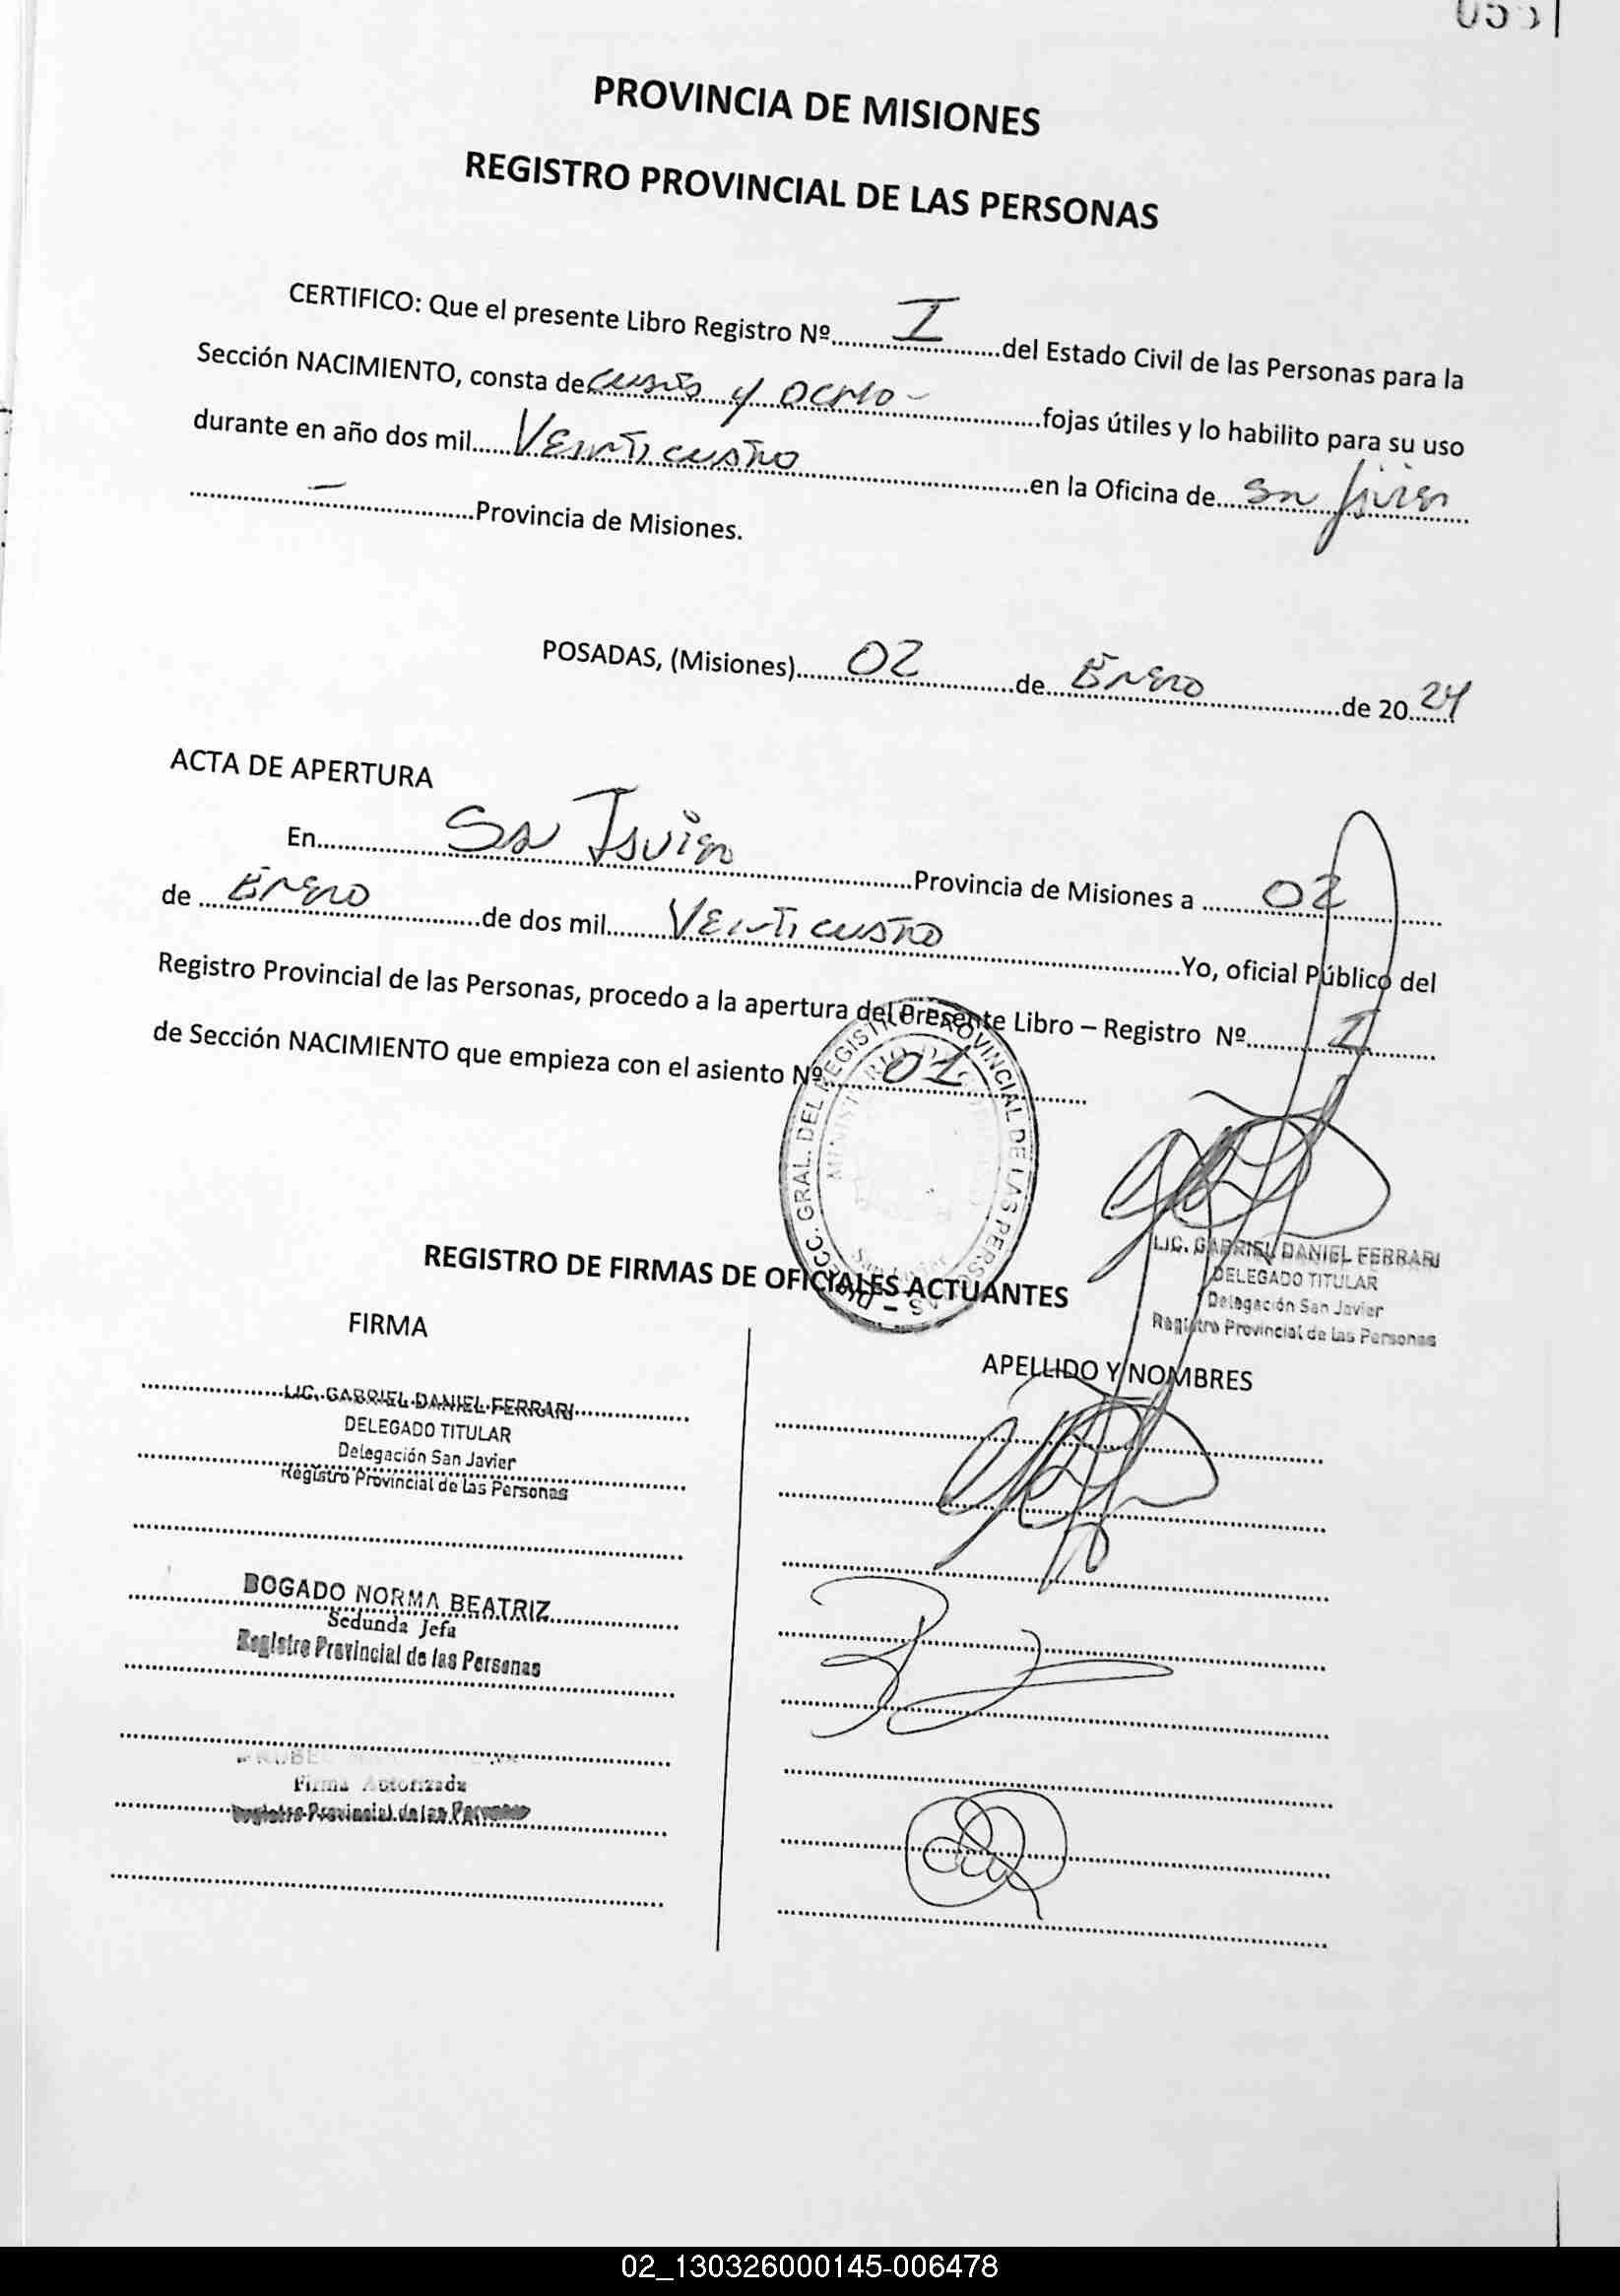 PROVINCIA DE MISIONES
REGISTRO PROVINCIAL DE LAS PERSONAS
CERTIFICO: Que el presente Libro Registro Nº......I......del Estado Civil de las Personas para la
Sección NACIMIENTO, consta de...... y ocho -......fojas útiles y lo habilito para su uso
durante en año dos mil......Veinticuatro......en la Oficina de......San Javier
......–......Provincia de Misiones.
POSADAS, (Misiones)......02......de......Enero......de 20...24
ACTA DE APERTURA
En......San Javier......Provincia de Misiones a ......02......
de ......Enero......de dos mil......Veinticuatro......Yo, oficial Público del
Registro Provincial de las Personas, procedo a la apertura del Presente Libro – Registro Nº......I......
de Sección NACIMIENTO que empieza con el asiento Nº......01......
DIRECC. GRAL. DEL REGISTRO PROVINCIAL DE LAS PERSONAS –
San Javier
LIC. GABRIEL DANIEL FERRARI
DELEGADO TITULAR
Delegación San Javier
Registro Provincial de las Personas
REGISTRO DE FIRMAS DE OFICIALES ACTUANTES
FIRMA
APELLIDO Y NOMBRES
LIC. GABRIEL DANIEL FERRARI
DELEGADO TITULAR
Delegación San Javier
Registro Provincial de las Personas
BOGADO NORMA BEATRIZ
Sedunda Jefa
Registro Provincial de las Personas
Firma Autorizada
Registro Provincial de las Personas
02_130326000145-006478